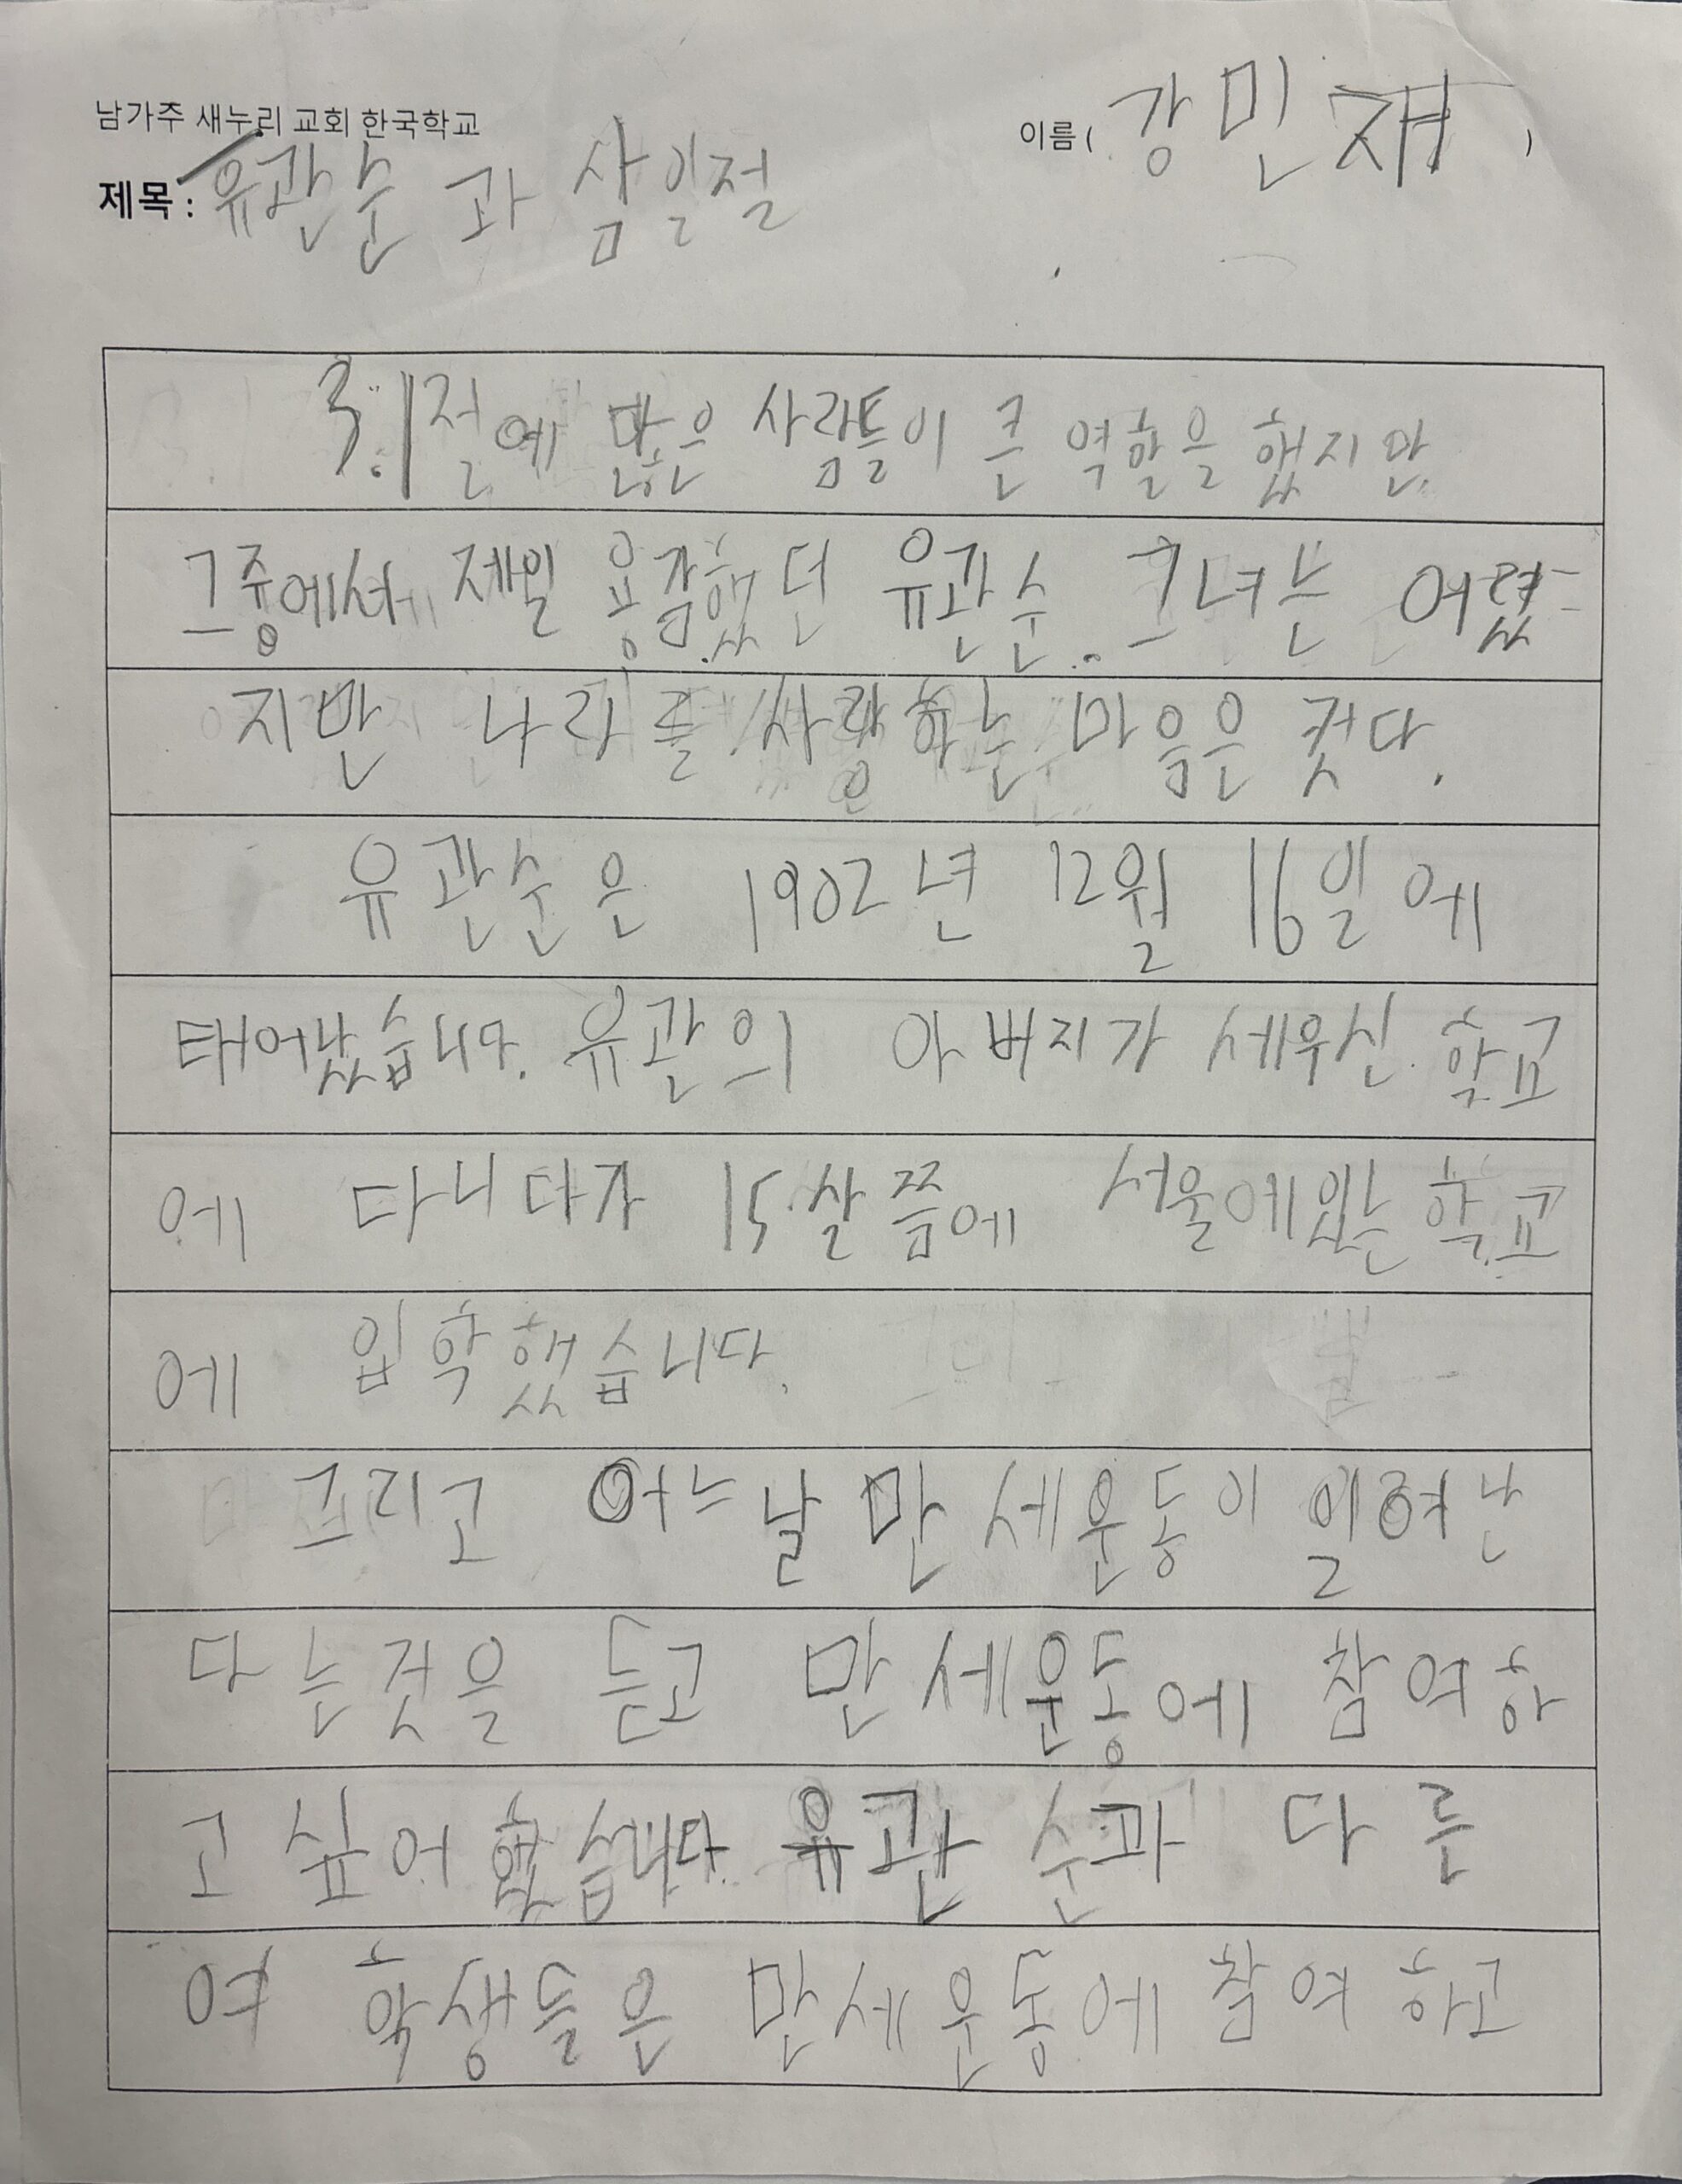 남가주 새누리 교회 한국학교
이름 ( 강민재 )
제목 : 유관순 과 삼일절
3.1절에 많은 사람들이 큰 역할을 했지만
그중에서 제일 용감했던 유관순. 그녀는 어렸
지만 나라를 사랑하는 마음은 컷다.
유관순은 1902년 12월 16일에
태어났습니다. 유관의 아버지가 세우신 학교
에 다니다가 15살쯤에 서울에있는 학교
에 입학했습니다.
그리고 어느날 만세운동이 일여난
다는것을 듣고 만세운동에 참여하
고 싶어 했습니다. 유관순과 다른
여 학생들은 만세운동에 참여하고